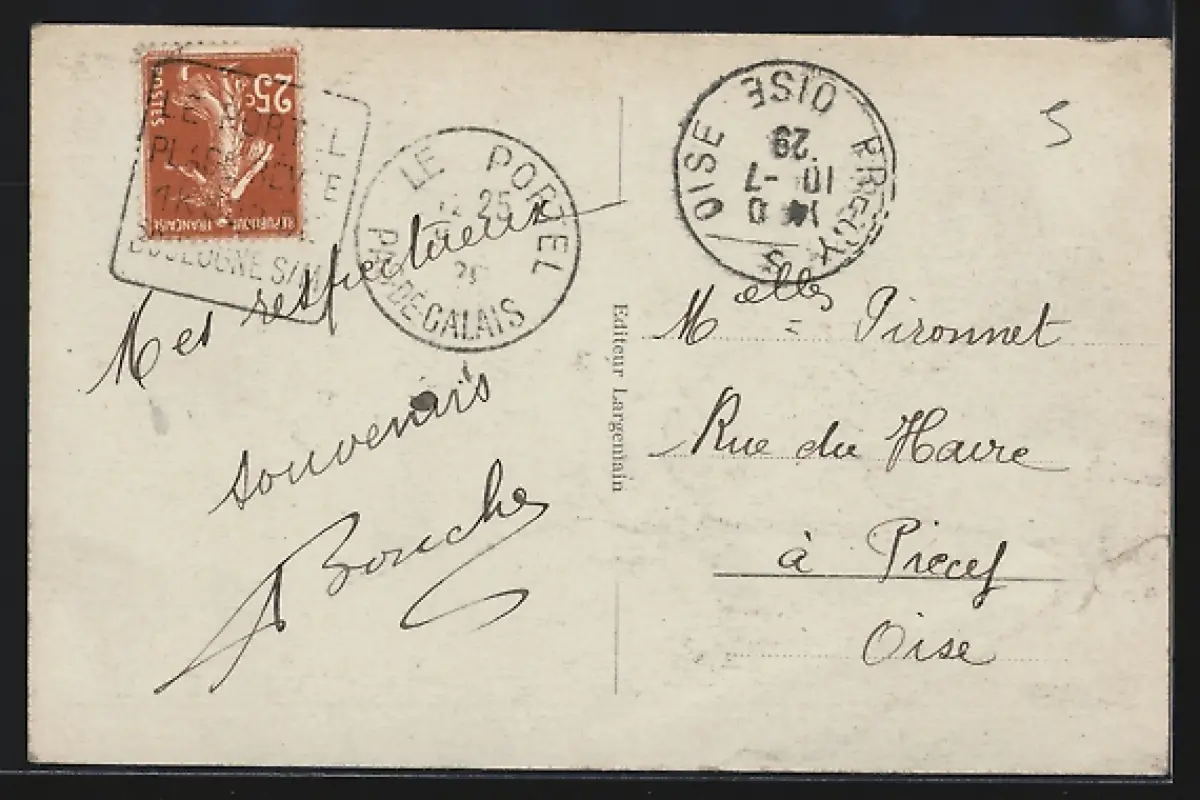 POSTES
25c
REPUBLIQUE FRANÇAISE
LE PORTEL
BOULOGNE S/M
LE PORTEL
25
PAS-DE-CALAIS
OISE
OISE
10 -7
29
5
Mes respectueux
souvenirs
Bouche
Editeur Largentain
Melles Pironnet
Rue du Havre
à
Oise